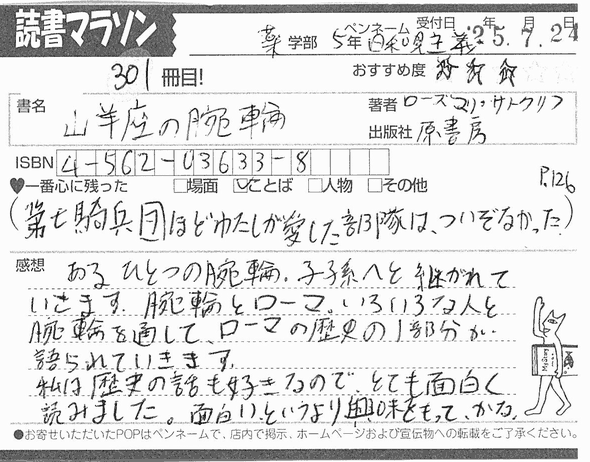 読書マラソン
ペンネーム 受付日 年 月 日
薬学部 5年 日和見主義 '25.7.24
301冊目! おすすめ度
書名 山羊座の腕輪
著者 ローズマリ・サトクリフ
出版社 原書房
ISBN 4-562-03633-8
♥一番心に残った □場面 ☑ことば □人物 □その他 P.126
(第七騎兵団ほどわたしが愛した部隊は、ついぞなかった)
感想 あるひとつの腕輪.子子孫へと継がれて
いきます.腕輪とローマ。いろいろな人と
腕輪を通して、ローマの歴史の1部分が
語られていきます.
私は歴史の話も好きなので、とても面白く
読みました。面白い、というより興味をもって、かな。
●お寄せいただいたPOPはペンネームで、店内で掲示、ホームページおよび宣伝物への転載をご了承ください。